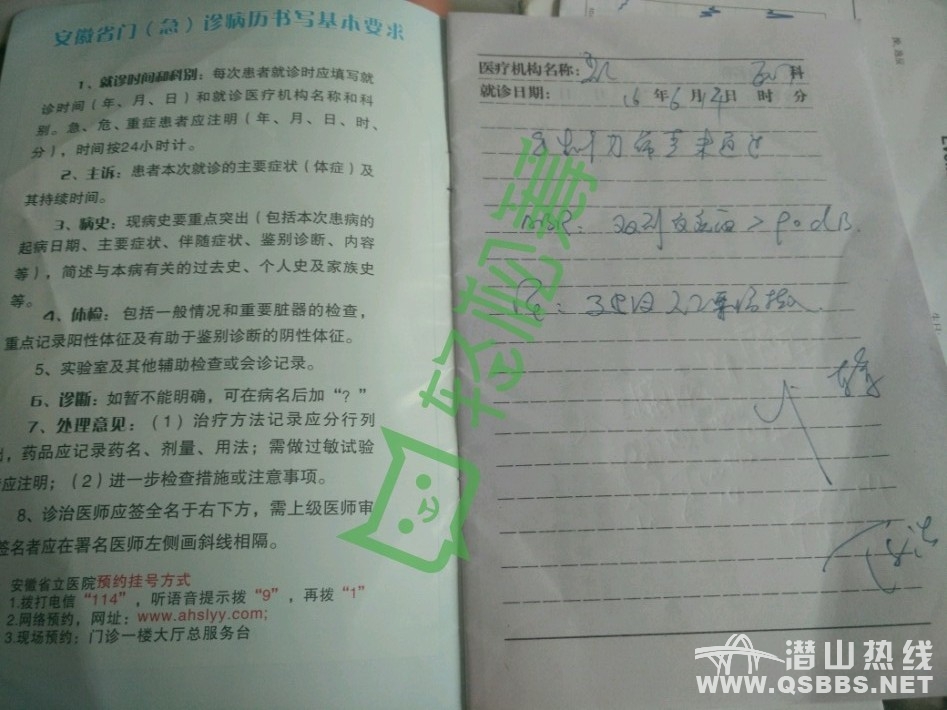 安徽省门（急）诊病历书写基本要求
1、就诊时间和科别：每次患者就诊时应填写就
诊时间（年、月、日）和就诊医疗机构名称和科
别。急、危、重症患者应注明（年、月、日、时、
分），时间按24小时计。
2、主诉：患者本次就诊的主要症状（体症）及
其持续时间。
3、病史：现病史要重点突出（包括本次患病的
起病日期、主要症状、伴随症状、鉴别诊断、内容
等），简述与本病有关的过去史、个人史及家族史
等。
4、体检：包括一般情况和重要脏器的检查，
重点记录阳性体征及有助于鉴别诊断的阴性体征。
5、实验室及其他辅助检查或会诊记录。
6、诊断：如暂不能明确，可在病名后加“？”
7、处理意见：（1）治疗方法记录应分行列
出，药品应记录药名、剂量、用法；需做过敏试验
应注明；（2）进一步检查措施或注意事项。
8、诊治医师应签全名于右下方，需上级医师审
签名者应在署名医师左侧画斜线相隔。
安徽省立医院预约挂号方式
1.拨打电信“114”，听语音提示拨“9”，再拨“1”
2.网络预约，网址：www.ahslyy.com;
3.现场预约：门诊一楼大厅总服务台
医疗机构名称： 科
就诊日期： 15 年 6 月 14 日 时 分
ABR： > 90 dB
轻松筹
潜山热线
WWW.QSBBS.NET